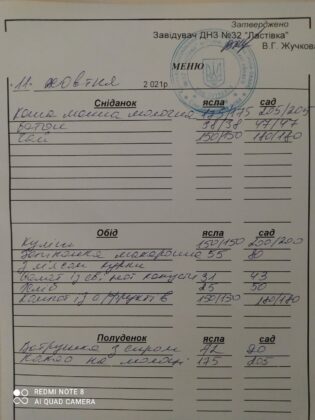 Затверджено
Завідувач ДНЗ №32 "Ластівка"
В.Г. Жучкова
МЕНЮ
11. жовтня 2021р
Сніданок ясла сад
Каша манна молочна 175/175 205/205
Батон 38/38 47/47
Чай 150/150 180/180
Обід ясла сад
Куліш 150/150 200/200
Запіканка макаронна 55 80
з мясом курки
Салат із св. капусти 31 43
Хліб 25 50
Компот із с/фруктів 150/150 180/180
Полуденок ясла сад
Ватрушка з сиром 72 90
Какао на молоці 175 205
REDMI NOTE 8
AI QUAD CAMERA